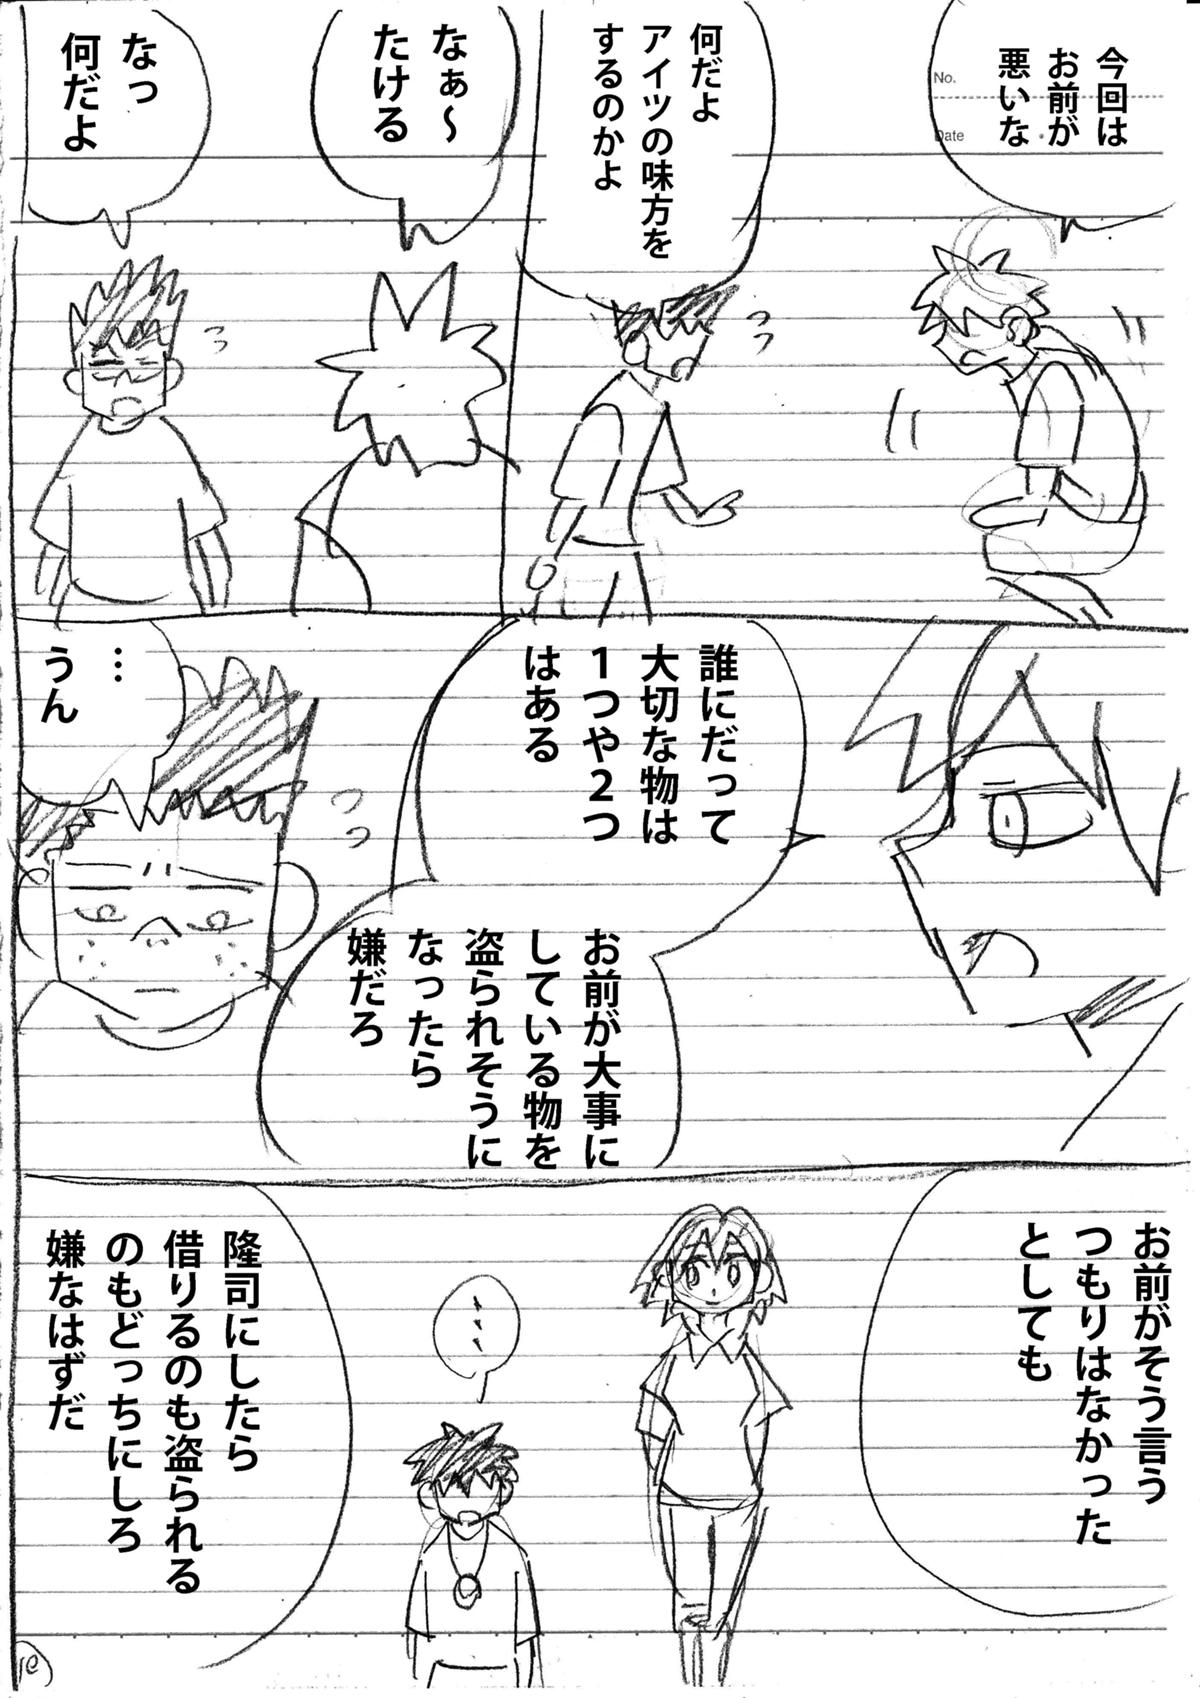 今回は
お前が
悪いな
No.
Date
何だよ
アイツの味方を
するのかよ
なぁ～
たける
なっ
何だよ
誰にだって
大切な物は
１つや２つ
はある
お前が大事に
している物を
盗られそうに
なったら
嫌だろ
…
うん
お前がそう言う
つもりはなかった
としても
、、、
隆司にしたら
借りるのも盗られる
のもどっちにしろ
嫌なはずだ